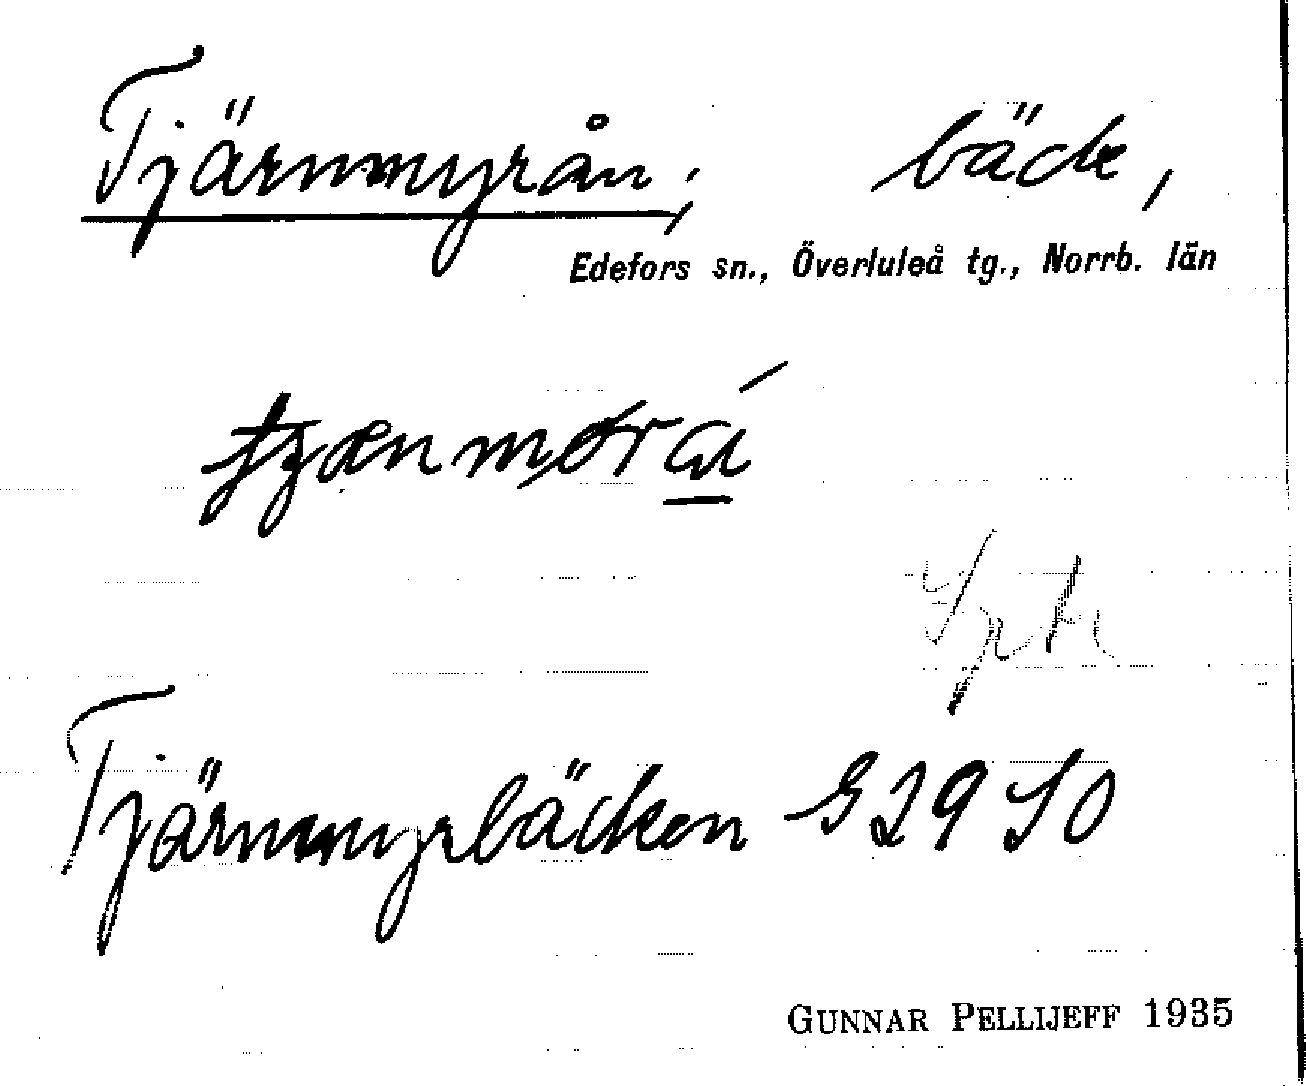 Tjärnmyrån; bäck,
Edefors sn., Överluleå tg., Norrb. län
Tjärnmyrbäcken G29 SO
GUNNAR PELLIJEFF 1935